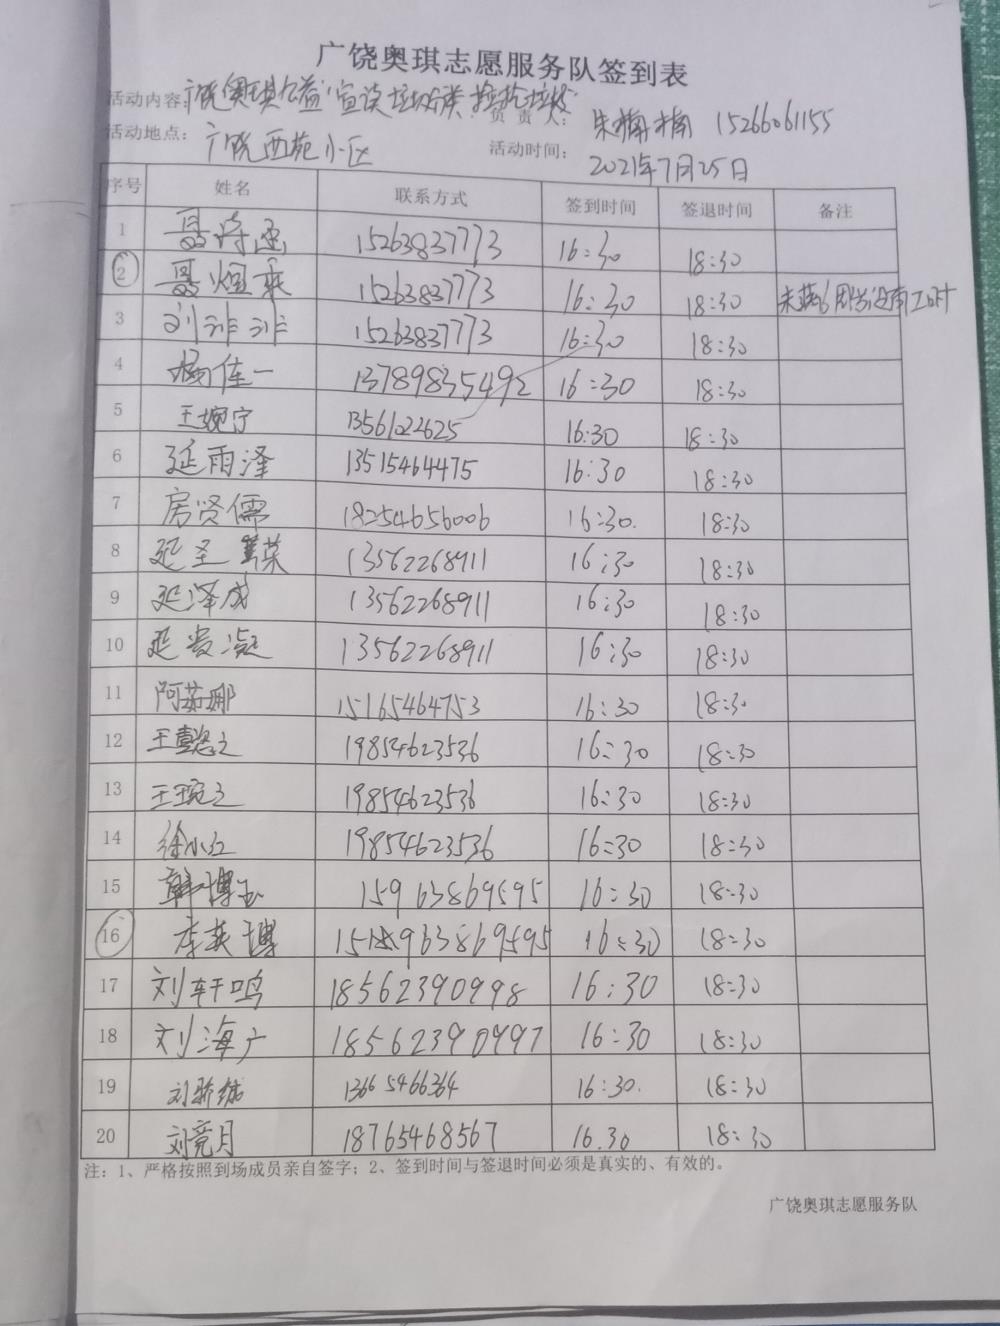 广饶奥琪志愿服务队签到表
活动内容：广饶奥琪公益"宣读垃圾分类，捡拾垃圾"
负责人： 朱楠楠 15266061155
活动地点： 广饶西苑小区
活动时间： 2021年7月25日
序号 姓名 联系方式 签到时间 签退时间 备注
1 聂诗涵 15263837773 16:30 18:30
2 聂煜乘 15263837773 16:30 18:30 未满6周岁没有工时
3 刘诽诽 15263837773 16:30 18:30
4 杨佳一 13789835492 16:30 18:30
5 王婉宁 13561022625 16:30 18:30
6 延雨泽 13515464475 16:30 18:30
7 房贤儒 18254656006 16:30. 18:30
8 延圣 13562268911 16:30 18:30
9 延泽成 13562268911 16:30 18:30
10 延贵凝 13562268911 16:30 18:30
11 阿茹娜 15165464753 16:30 18:30
12 王懿之 19854623536 16:30 18:30
13 王琬之 19854623536 16:30 18:30
14 徐小红 19854623536 16:30 18:30
15 韩博 15963869595 16:30 18:30
16 李英博 15963869595 16:30 18:30
17 刘轩鸣 18562390998 16:30 18:30
18 刘海广 18562390997 16:30 18:30
19 刘骄 13665466364 16:30. 18:30
20 刘竟月 18765468567 16.30 18:30
注：1、严格按照到场成员亲自签字；2、签到时间与签退时间必须是真实的、有效的。
广饶奥琪志愿服务队